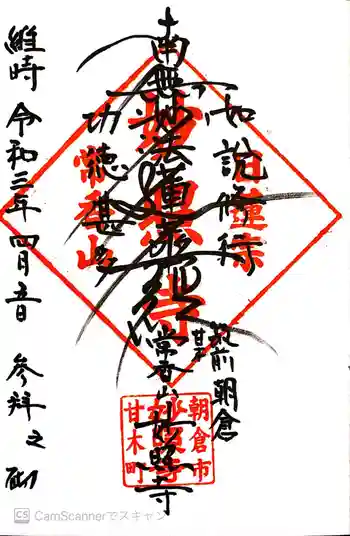 如説修行
南無妙法蓮華経
功徳甚多
維時 令和三年四月五日 参拝之砌
筑前
甘木
朝倉
常香山 妙照寺
日蓮宗
常香山
朝倉市
甘木町
CS CamScannerでスキャン